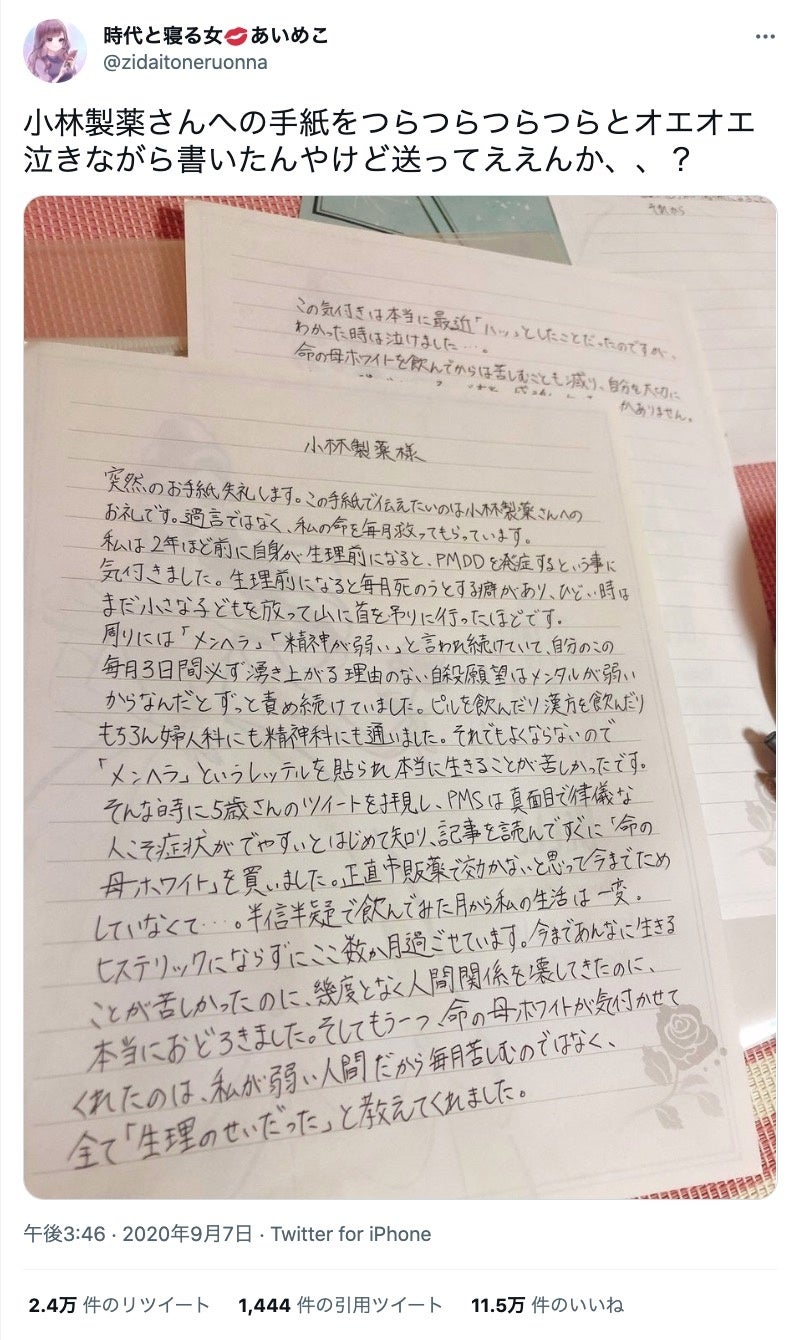 時代と寝る女💋あいめこ
@zidaitoneruonna
小林製薬さんへの手紙をつらつらつらつらとオエオエ
泣きながら書いたんやけど送ってええんか、、？
それから
この気付きは本当に最近「ハッ」としたことだったのですが、
わかった時は泣けました…。
命の母ホワイトを飲んでからは苦しむことも減り、自分を大切に
かありません。
小林製薬様
突然のお手紙失礼します。この手紙で伝えたいのは小林製薬さんへの
お礼です。過言ではなく、私の命を毎月救ってもらっています。
私は2年ほど前に自身が生理前になると、PMDDを発症するという事に
気付きました。生理前になると毎月死のうとする癖があり、ひどい時は
まだ小さな子どもを放って山に首を吊りに行ったほどです。
周りには「メンヘラ」「精神が弱い」と言われ続けていて、自分のこの
毎月3日間必ず湧き上がる理由のない自殺願望はメンタルが弱い
からなんだとずっと責め続けていました。ピルを飲んだり漢方を飲んだり
もちろん婦人科にも精神科にも通いました。それでもよくならないので
「メンヘラ」というレッテルを貼られ本当に生きることが苦しかったです。
そんな時に5歳さんのツイートを拝見し、PMSは真面目で律儀な
人こそ症状がでやすいとはじめて知り、記事を読んですぐに「命の
母ホワイト」を買いました。正直市販薬で効かないと思って今までため
していなくて…。半信半疑で飲んでみた月から私の生活は一変。
ヒステリックにならずにここ数か月過ごせています。今まであんなに生きる
ことが苦しかったのに、幾度となく人間関係を壊してきたのに、
本当におどろきました。そしてもう一つ、命の母ホワイトが気付かせて
くれたのは、私が弱い人間だから毎月苦しむのではなく、
全て「生理のせいだった」と教えてくれました。
午後3:46 · 2020年9月7日 · Twitter for iPhone
2.4万 件のリツイート 1,444 件の引用ツイート 11.5万 件のいいね